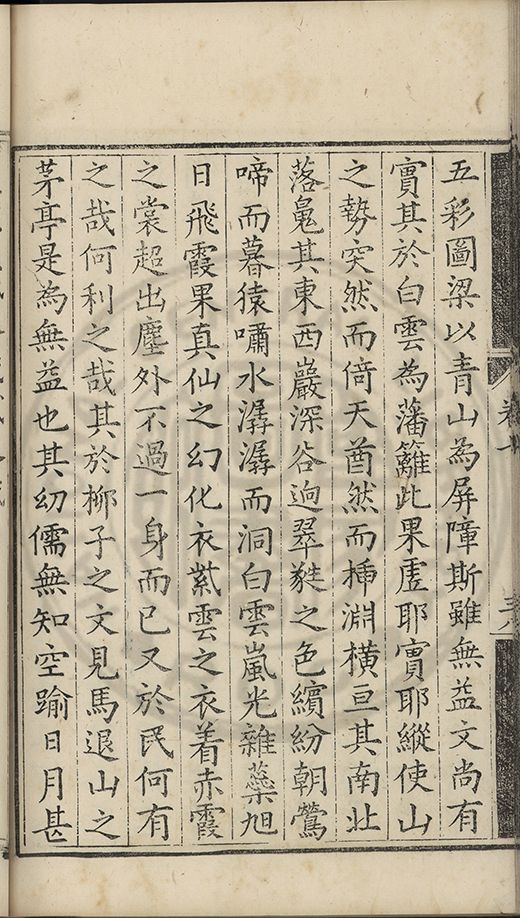 五彩圖梁以青山為屏障斯雖無益文尚有
實其於白雲為藩籬此果虛耶實耶縱使山
之勢突然而倚天酋然而揷淵橫亘其南北
落鳧其東西巖深谷逈翠蕤之色繽紛朝鶯
啼而暮猿嘯水潺潺而洞白雲嵐光雜蘂旭
日飛霞果真仙之幻化衣紫雲之衣着赤霞
之裳超出塵外不過一身而已又於民何有
之哉何利之哉其於柳子之文見馬退山之
茅亭是為無益也其幼儒無知空踰日月甚